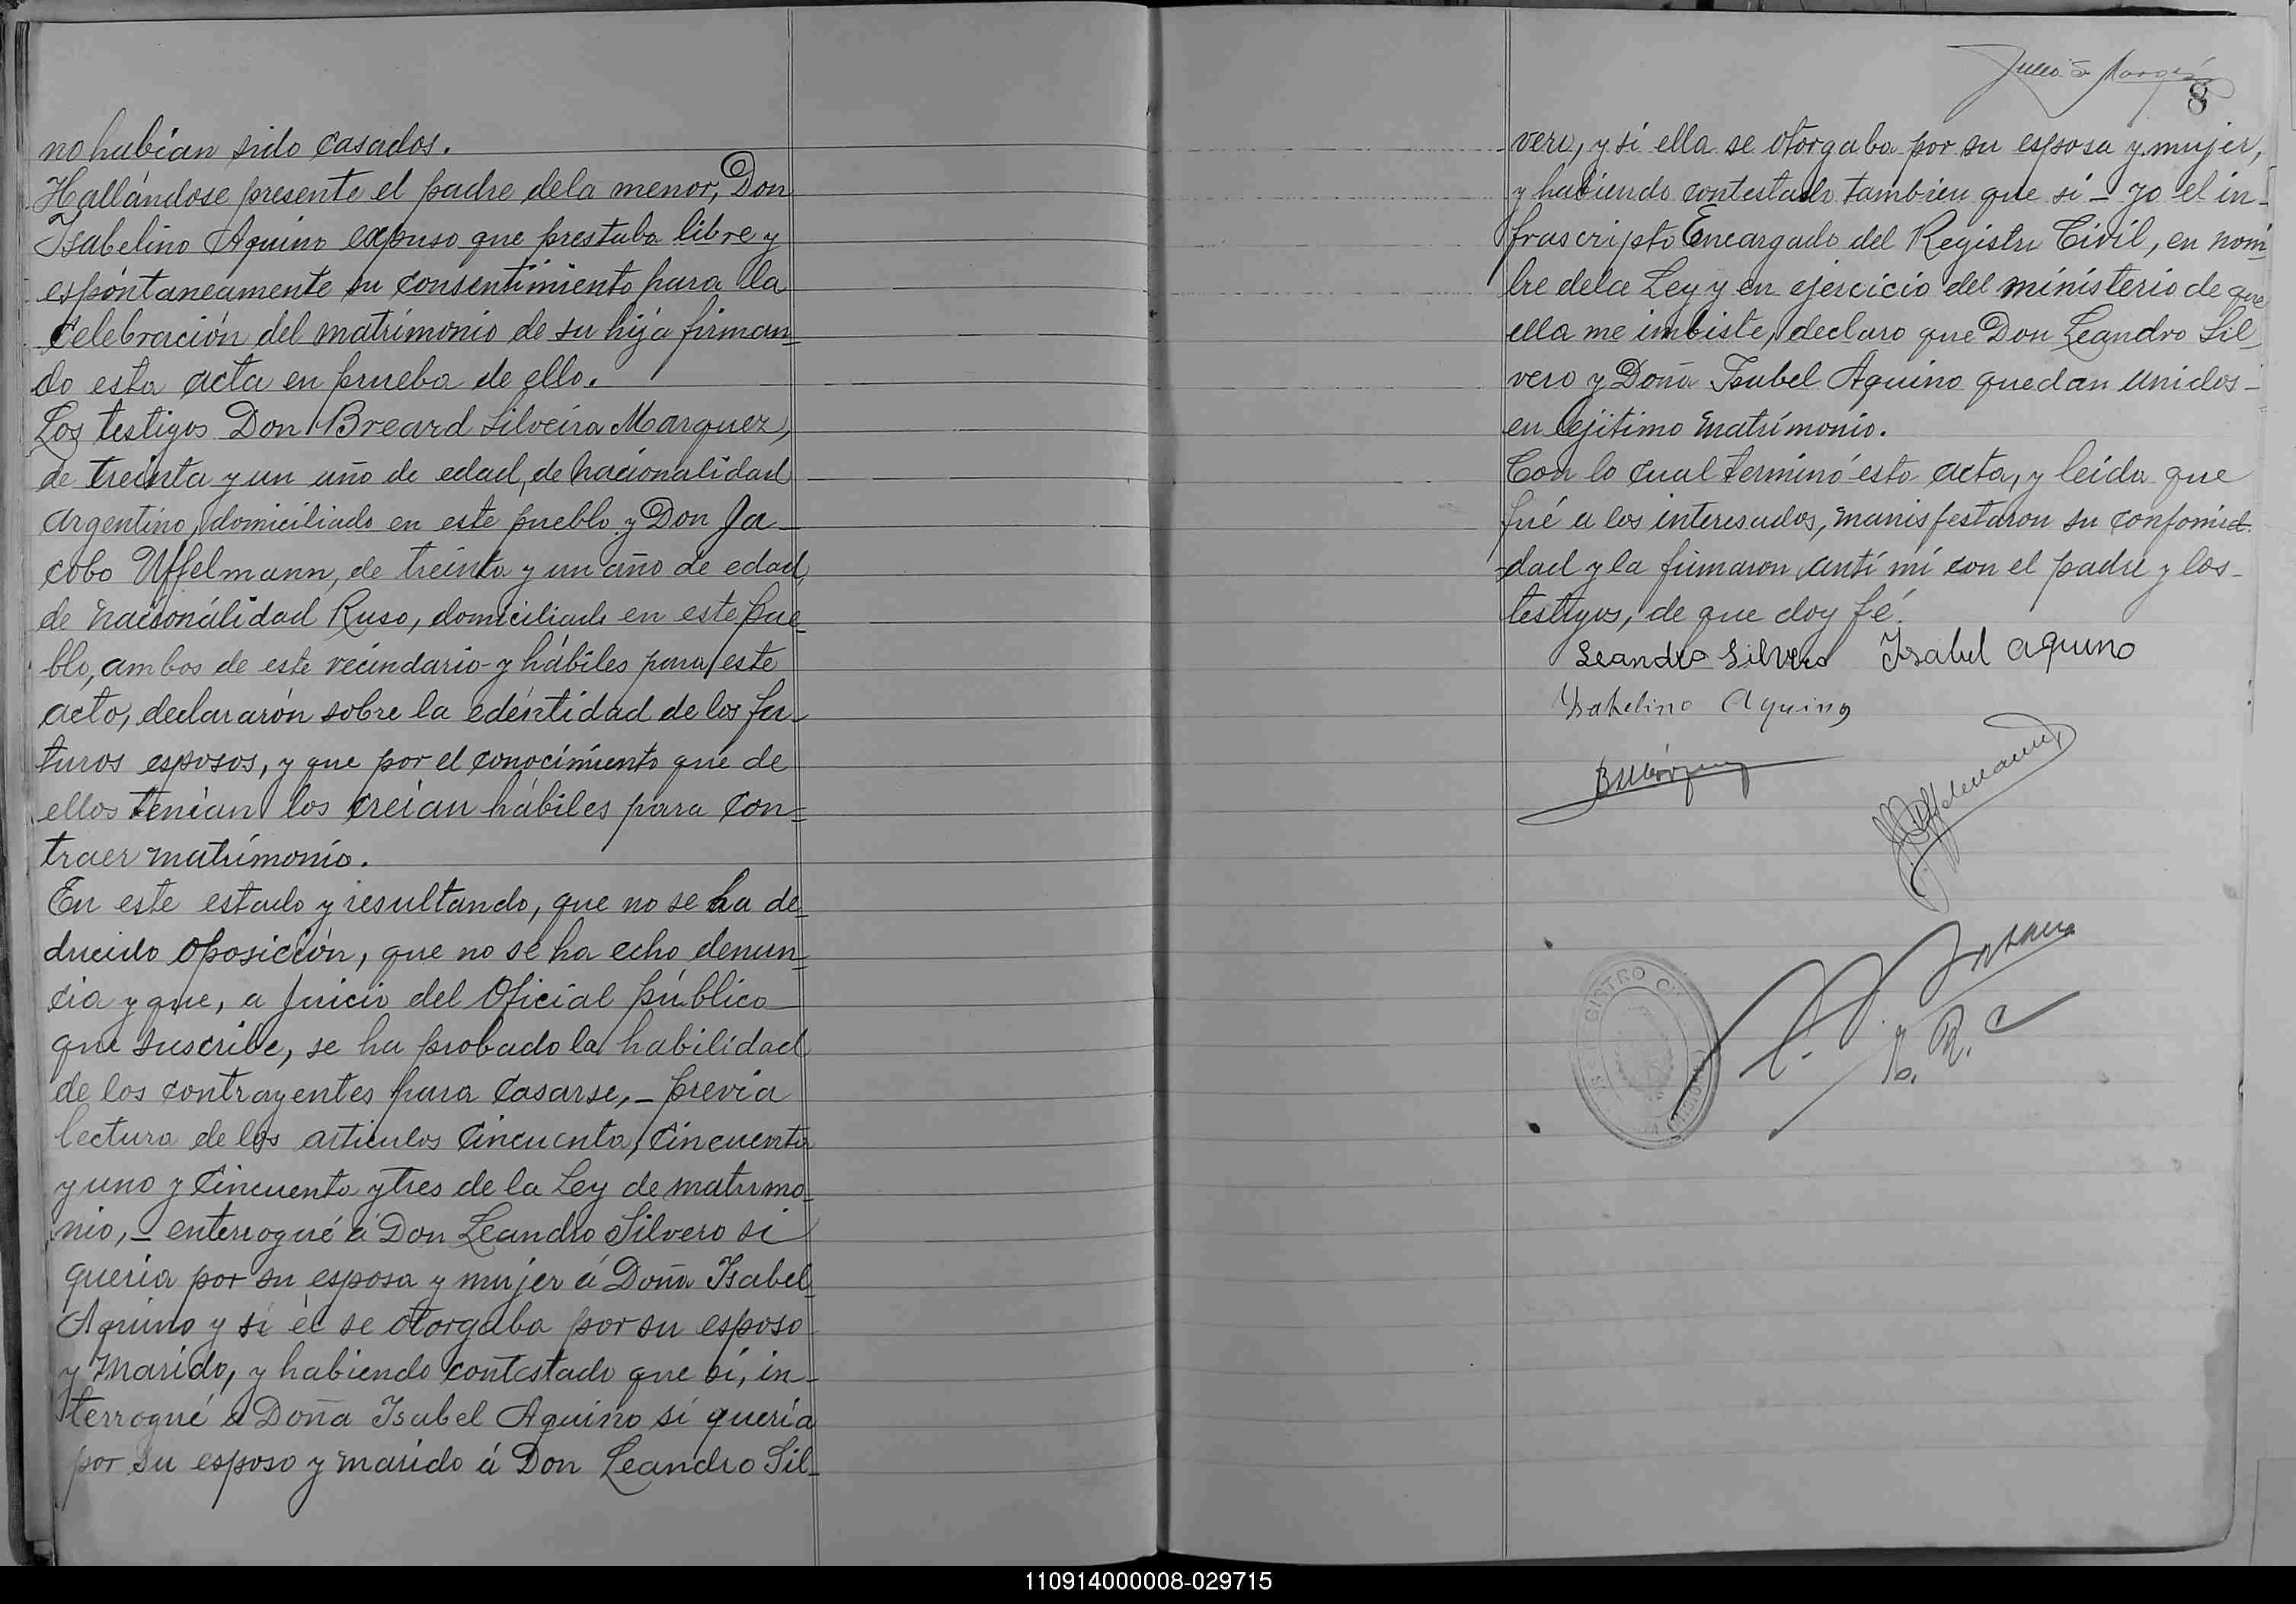 no habian sido casados.
Hallándose presente el padre dela menor, Don
Isabelino Aquino expuso que prestaba libre y
espóntaneamente su consentimiento para la
celebración del matrimonio de su hija firman=
do esta acta en prueba de ello.
Los testigos Don Breard Silveira Marquez,
de treinta y un año de edad, de nacionalidad
Argentino, domiciliado en este pueblo y Don Ja-
cobo Uffelmann, de treinta y un año de edad,
de nacionálidad Ruso, domiciliado en este pue=
blo, ambos de este vecindario y hábiles para este
acto, declararón sobre la edéntidad de los fu-
turos esposos, y que por el conocimiento que de
ellos tenían los creían hábiles para con=
traer matrimonio.
En este estado y resultando, que no se ha de=
ducido oposición, que no se ha echo denun=
cia y que, a juicio del Oficial público
que suscribe, se ha probado la habilidad
de los contrayentes para casarse, - previa
lectura de los articulos cincuenta, cincuenta
y uno y cincuenta y tres de la Ley de matrimo=
nio, - enterrogué á Don Leandro Silvero si
queria por su esposa y mujer á Doña Isabel
Aquino y si él se otorgaba por su esposo
y marido, y habiendo contestado que sí, in-
terrogué á Doña Isabel Aquino si quería
por su esposo y marido á Don Leandro Sil-
8
vero, y si ella se otorgaba por su esposa y mujer,
y habiendo contestado tambien que si - yo el in-
frascripto Encargado del Registro Civil, en nom=
bre dela Ley y en ejercicio del ministerio de que
ella me imbiste, declaro que Don Leandro Sil-
vero y Doña Isabel Aquino quedan unidos -
en lejitimo matrimonio.
Con lo cual terminó esta acta, y leida que
fué a los interesados, manisfestaron su confomid
dad y la firmaron antí mí con el padre y los -
testigos, de que doy fé.
Leandro Silvero Isabel Aquino
Isabelino Aquino
J. Uffelmann
REGISTRO
E. R. C
110914000008-029715